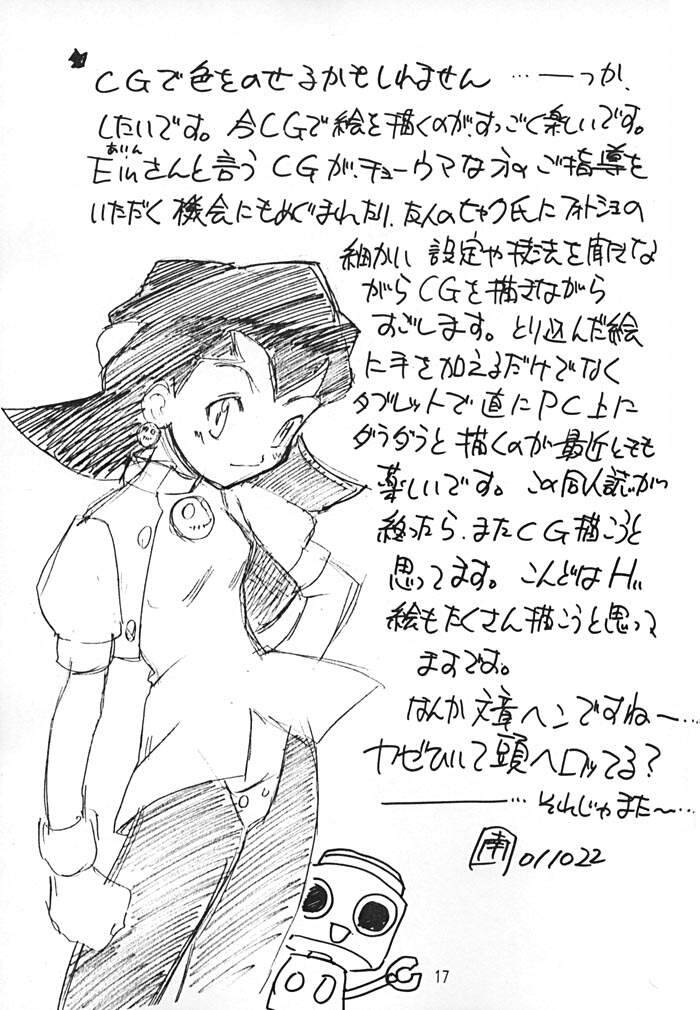 CGで色をのせるかもしれません …ーっか、
したいです。今CGで絵を描くのが、すっごく楽しいです。
あいん
Einさんと言う CGが、チョーウマな方のご指導を
いただく 機会にもめぐまれたり、友人のヒャク氏にフォトショの
細かい 設定や技法を聞きな
がらCGを描きながら
すごします。とり込んだ絵
に手を加えるだけでなく
タブレットで直にPC上に
ダラダラと描くのが最近とても
楽しいです。この同人誌が
終ったら、またCG描こうと
思ってます。こんどはH"
絵もたくさん描こうと思って
ますです。
なんか文章ヘンですねー…
カゼひいて頭ヘロッてる?
…それじゃまた〜…
南 011022
17